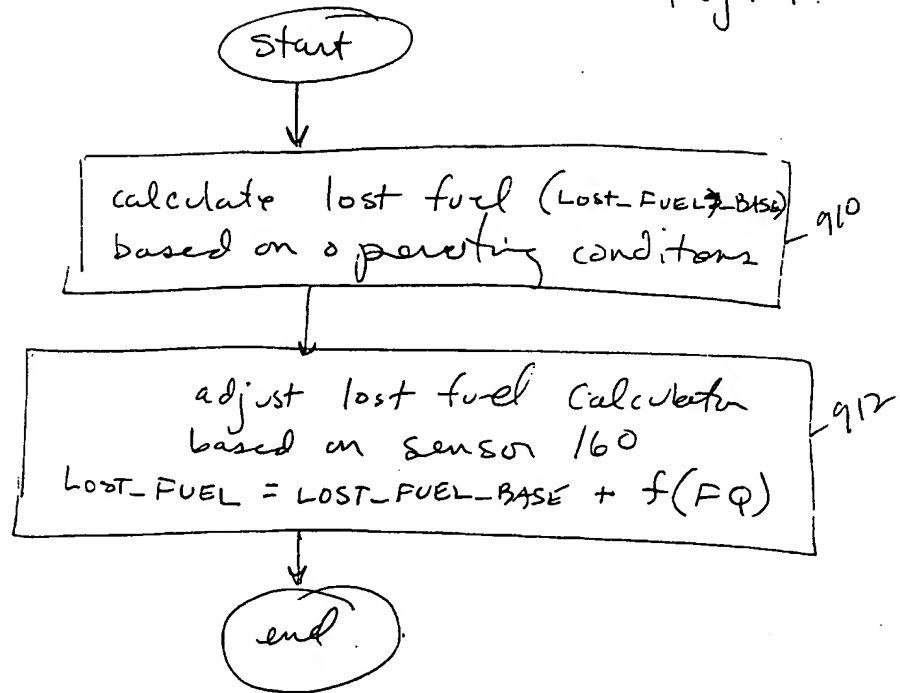 start
calculate lost fuel (LOST_FUEL_BASE)
based on operating conditions
910
adjust lost fuel calculation
based on sensor 160
LOST_FUEL = LOST_FUEL_BASE + f(FQ)
912
end